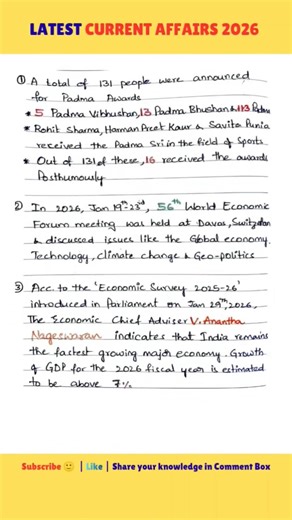 LATEST CURRENT AFFAIRS 2026
① A total of 131 people were announced
for Padma Awards
* 5 Padma Vibhushan, 13 Padma Bhushan & 113 Padma
* Rohit Sharma, Harman Preet Kaur & Savita Punia
received the Padma Sri in the field of Sports
* Out of 131 of these, 16 received the awards
Posthumously
② In 2026, Jan 19th-23rd, 56th World Economic
Forum meeting was held at Davos, Switzerlan
& discussed issues like the Global economy,
Technology, climate change & Geo-politics
③ Acc. to the 'Economic Survey 2025-26'
introduced in Parliament on Jan 29th, 2026,
The Economic Chief Adviser V. Anantha
Nageswaran indicates that India remains
the fastest growing major economy. Growth
of GDP for the 2026 fiscal year is estimated
to be above 7%
Subscribe 🙂 | Like | Share your knowledge in Comment Box